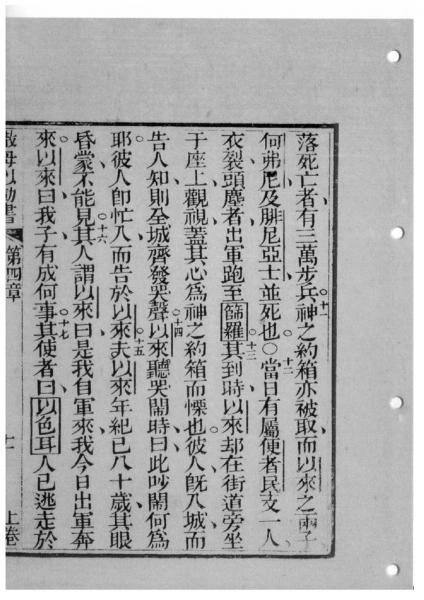 落死亡者有三萬步兵○十一神之約箱亦被取而以來之兩子
何弗尼及腓尼亞士並死也○十二當日有屬便者民支一人
衣裂頭塵者出軍跑至篩羅○十三其到時以來却在街道旁坐
于座上觀視蓋其心爲神之約箱而慄也彼人旣入城而
告人知則全城齊發哭聲○十四以來聽哭鬧時曰此吵鬧何爲
耶彼人卽忙入而告於以來○十五夫以來年紀已八十歲其眼
昏蒙不能見○十六其人謂以來曰是我自軍來我今日出軍奔
來以來曰我子有成何事○十七其使者曰以色耳人已逃走於
撒母以勒書 第四章 十一 上卷